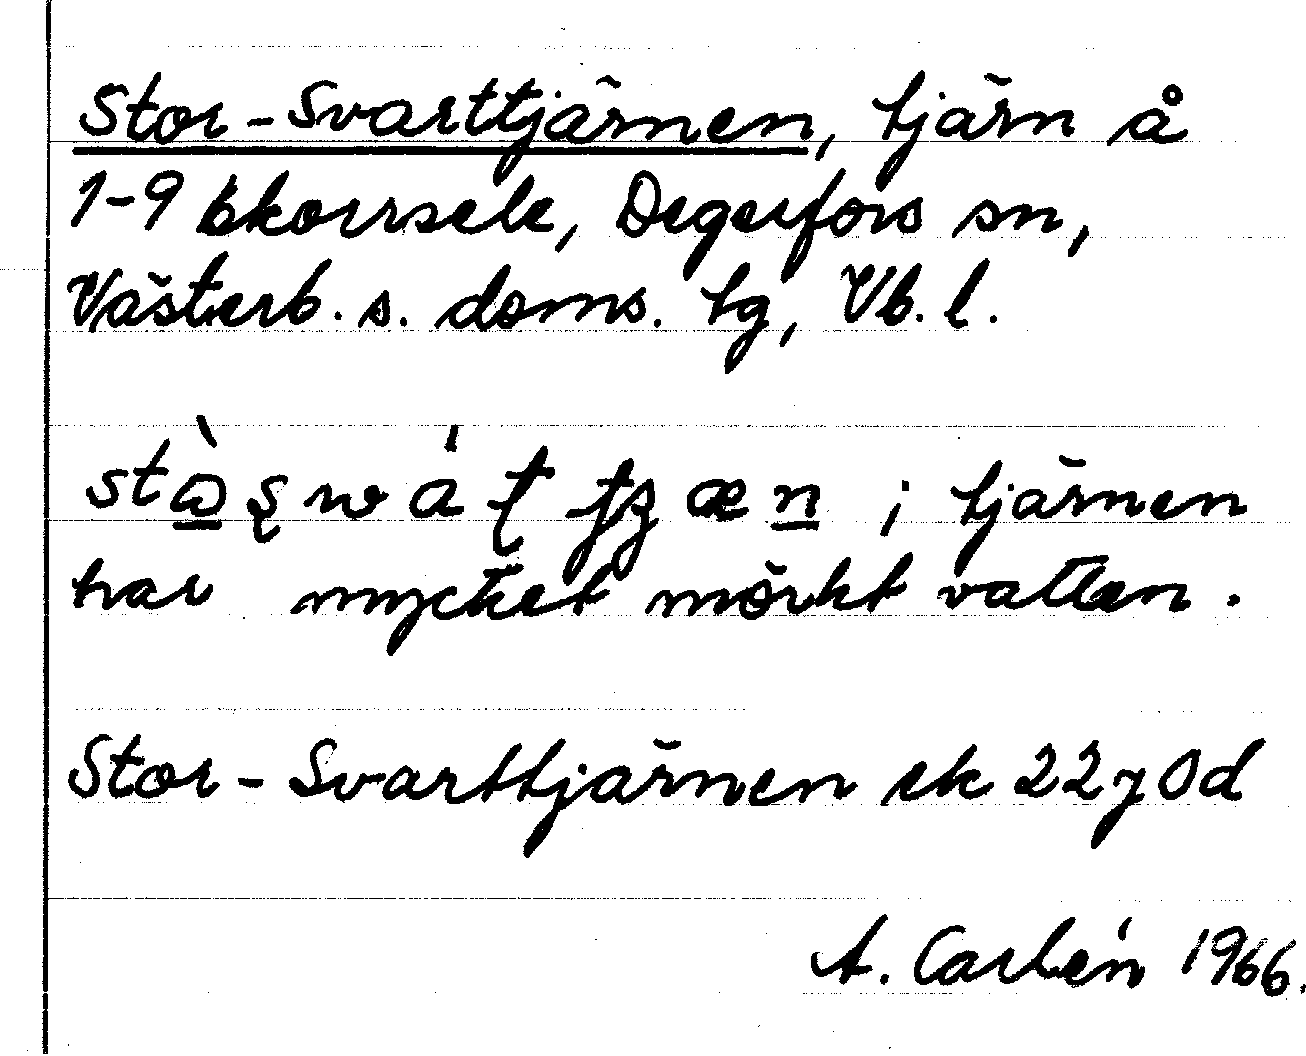 Stor-Svarttjärnen, tjärn å
1-9 Ekorrsele, Degerfors sn,
Västerb. s. doms. tg, Vb. l.
; tjärnen
har mycket mörkt vatten.
Stor-Svarttjärnen ek 22 J 0 d
A. Carlén 1966.